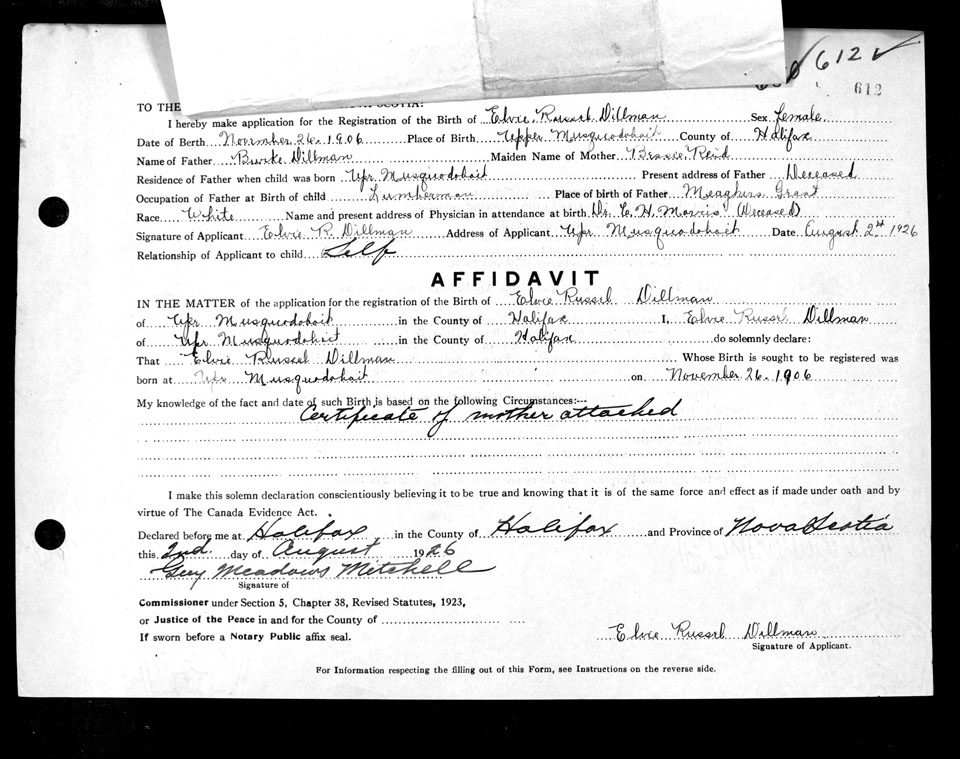 612 ✓
612
TO THE
I hereby make application for the Registration of the Birth of Elvie Russel Dillman Sex Female
Date of Berth November 26. 1906 Place of Birth Upper Musquodoboit County of Halifax
Name of Father Burke Dillman Maiden Name of Mother Bessie Reid
Residence of Father when child was born Upr Musquodoboit Present address of Father Deceased
Occupation of Father at Birth of child Lumberman Place of birth of Father Meaghers Grant
Race White Name and present address of Physician in attendance at birth Dr. C. H. Morris (Deceased)
Signature of Applicant Elvie R. Dillman Address of Applicant Upr Musquodoboit Date August 2nd 1926
Relationship of Applicant to child Self
AFFIDAVIT
IN THE MATTER of the application for the registration of the Birth of Elvie Russel Dillman
of Upr Musquodoboit in the County of Halifax I, Elvie Russel Dillman
of Upr Musquodoboit in the County of Halifax do solemnly declare:
That Elvie Russel Dillman Whose Birth is sought to be registered was
born at Upr Musquodoboit on November 26. 1906
My knowledge of the fact and date of such Birth is based on the following Circumstances:---
Certificate of mother attached
I make this solemn declaration conscientiously believing it to be true and knowing that it is of the same force and effect as if made under oath and by
virtue of The Canada Evidence Act.
Declared before me at Halifax, in the County of Halifax and Province of Nova Scotia
this 2nd. day of August 1926
Guy Meadows Metchell
Signature of
Commissioner under Section 5, Chapter 38, Revised Statutes, 1923,
or Justice of the Peace in and for the County of
If sworn before a Notary Public affix seal.
Elvie Russel Dillman
Signature of Applicant.
For Information respecting the filling out of this Form, see Instructions on the reverse side.